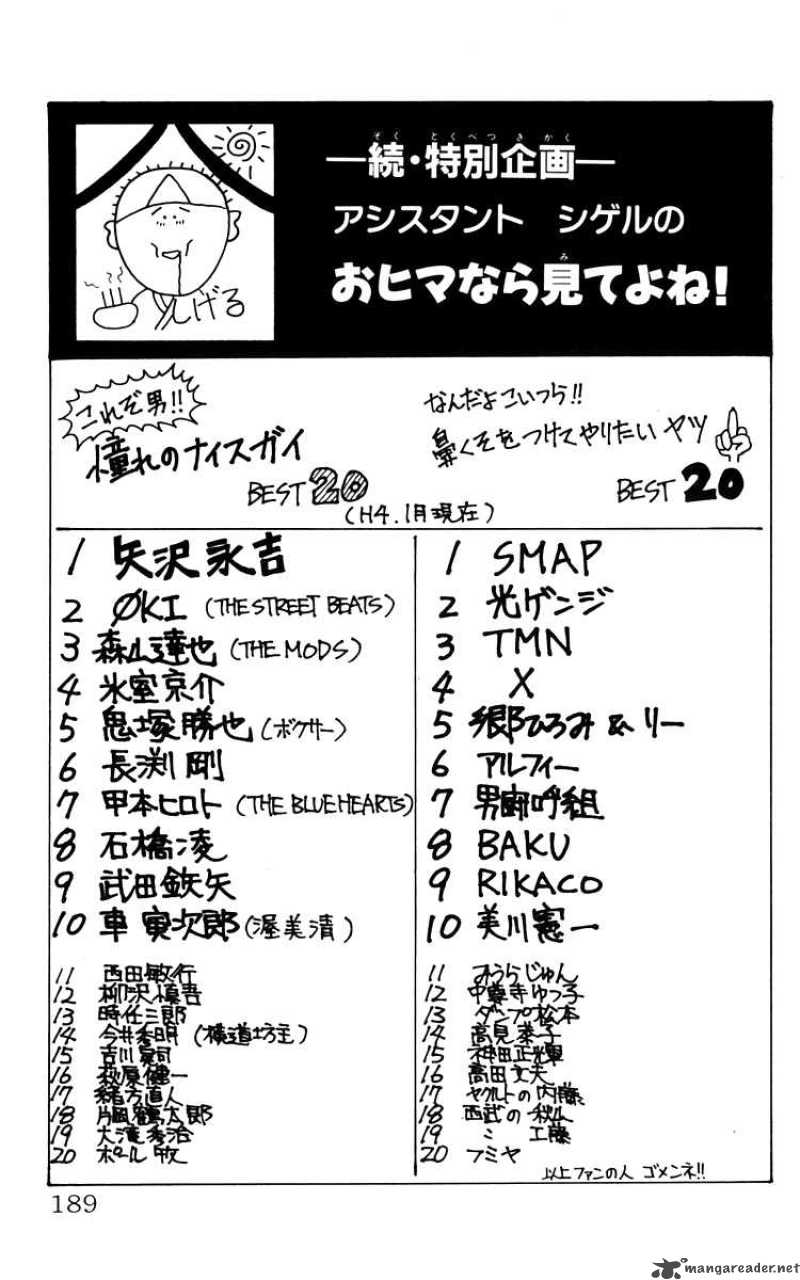 ―続・特別企画―
アシスタント シゲルの
おヒマなら見てよね!
しげる
これぞ男!!
憧れのナイスガイ
BEST 20
なんだよこいつら!!
鼻くそをつけてやりたいヤツ
BEST 20
(H4.1月現在)
1 矢沢永吉
2 ØKI (THE STREET BEATS)
3 森山達也 (THE MODS)
4 氷室京介
5 鬼塚勝也 (ボクサー)
6 長渕剛
7 甲本ヒロト (THE BLUE HEARTS)
8 石橋凌
9 武田鉄矢
10 車寅次郎 (渥美清)
11 西田敏行
12 柳沢慎吾
13 時任三郎
14 今井秀明 (横道坊主)
15 吉川晃司
16 萩原健一
17 緒方直人
18 片岡鶴太郎
19 大滝秀治
20 ポール牧
1 SMAP
2 光ゲンジ
3 TMN
4 X
5 郷ひろみ&リー
6 アルフィー
7 男闘呼組
8 BAKU
9 RIKACO
10 美川憲一
11 みうらじゅん
12 中尊寺ゆつ子
13 ダンプ松本
14 高見恭子
15 神田正輝
16 高田文夫
17 ヤクルトの内藤
18 西武の秋山
19 〃 工藤
20 フミヤ
以上ファンの人 ゴメンネ!!
189
mangareader.net